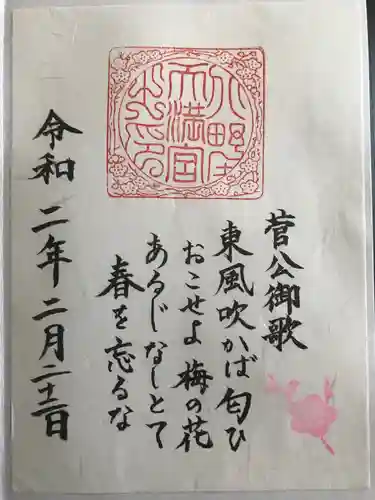 菅公御歌
東風吹かば匂ひ
おこせよ梅の花
あるじなしとて
春を忘るな
令和二年二月二十三日